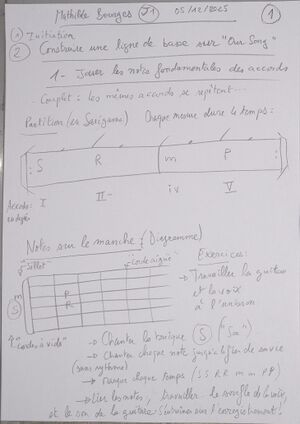 Mathilde Bourges J1 05/12/2025 1
1 Initiation
2 Construire une ligne de basse sur "Our Song"
1- Jouer les notes fondamentales des accords
Couplet : les mêmes accords se répètent...
Partition (en Sargam) Chaque mesure dure 4 temps :
S R m P
Accords I II- IV V
Notes sur le manche (Diagramme)
"Sillet" "Corde aiguë"
Exercices:
→ Travailler la guitare
et la voix
à l'unisson
m P
S R
"Cordes à vide"
→ Chanter la tonique S ("Saa")
→ Chanter chaque note jusqu'à fin de
(sans rythme)
→ chaque temps (S S R R m m P P)
→ Lier les notes, travailler le souffle de la voix,
et le son de la guitare S'entraîner sur l'enregistrement !